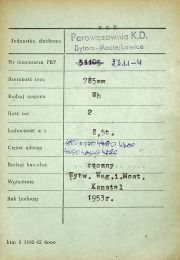 PKP
Jednostka służbowa Parowozownia K.D.
Bytom-Maciejkowice
Nr inwentarza PKP
Szerokość toru 785mm
Rodzaj napraw
Ilość osi 2
Ładowność w t. 8,5t.
Ciężar własny
Rodzaj hamulca ręczny
Wytwórnia Wytw. Wag.i.Most.
Konstal
Rok budowy 1953r.